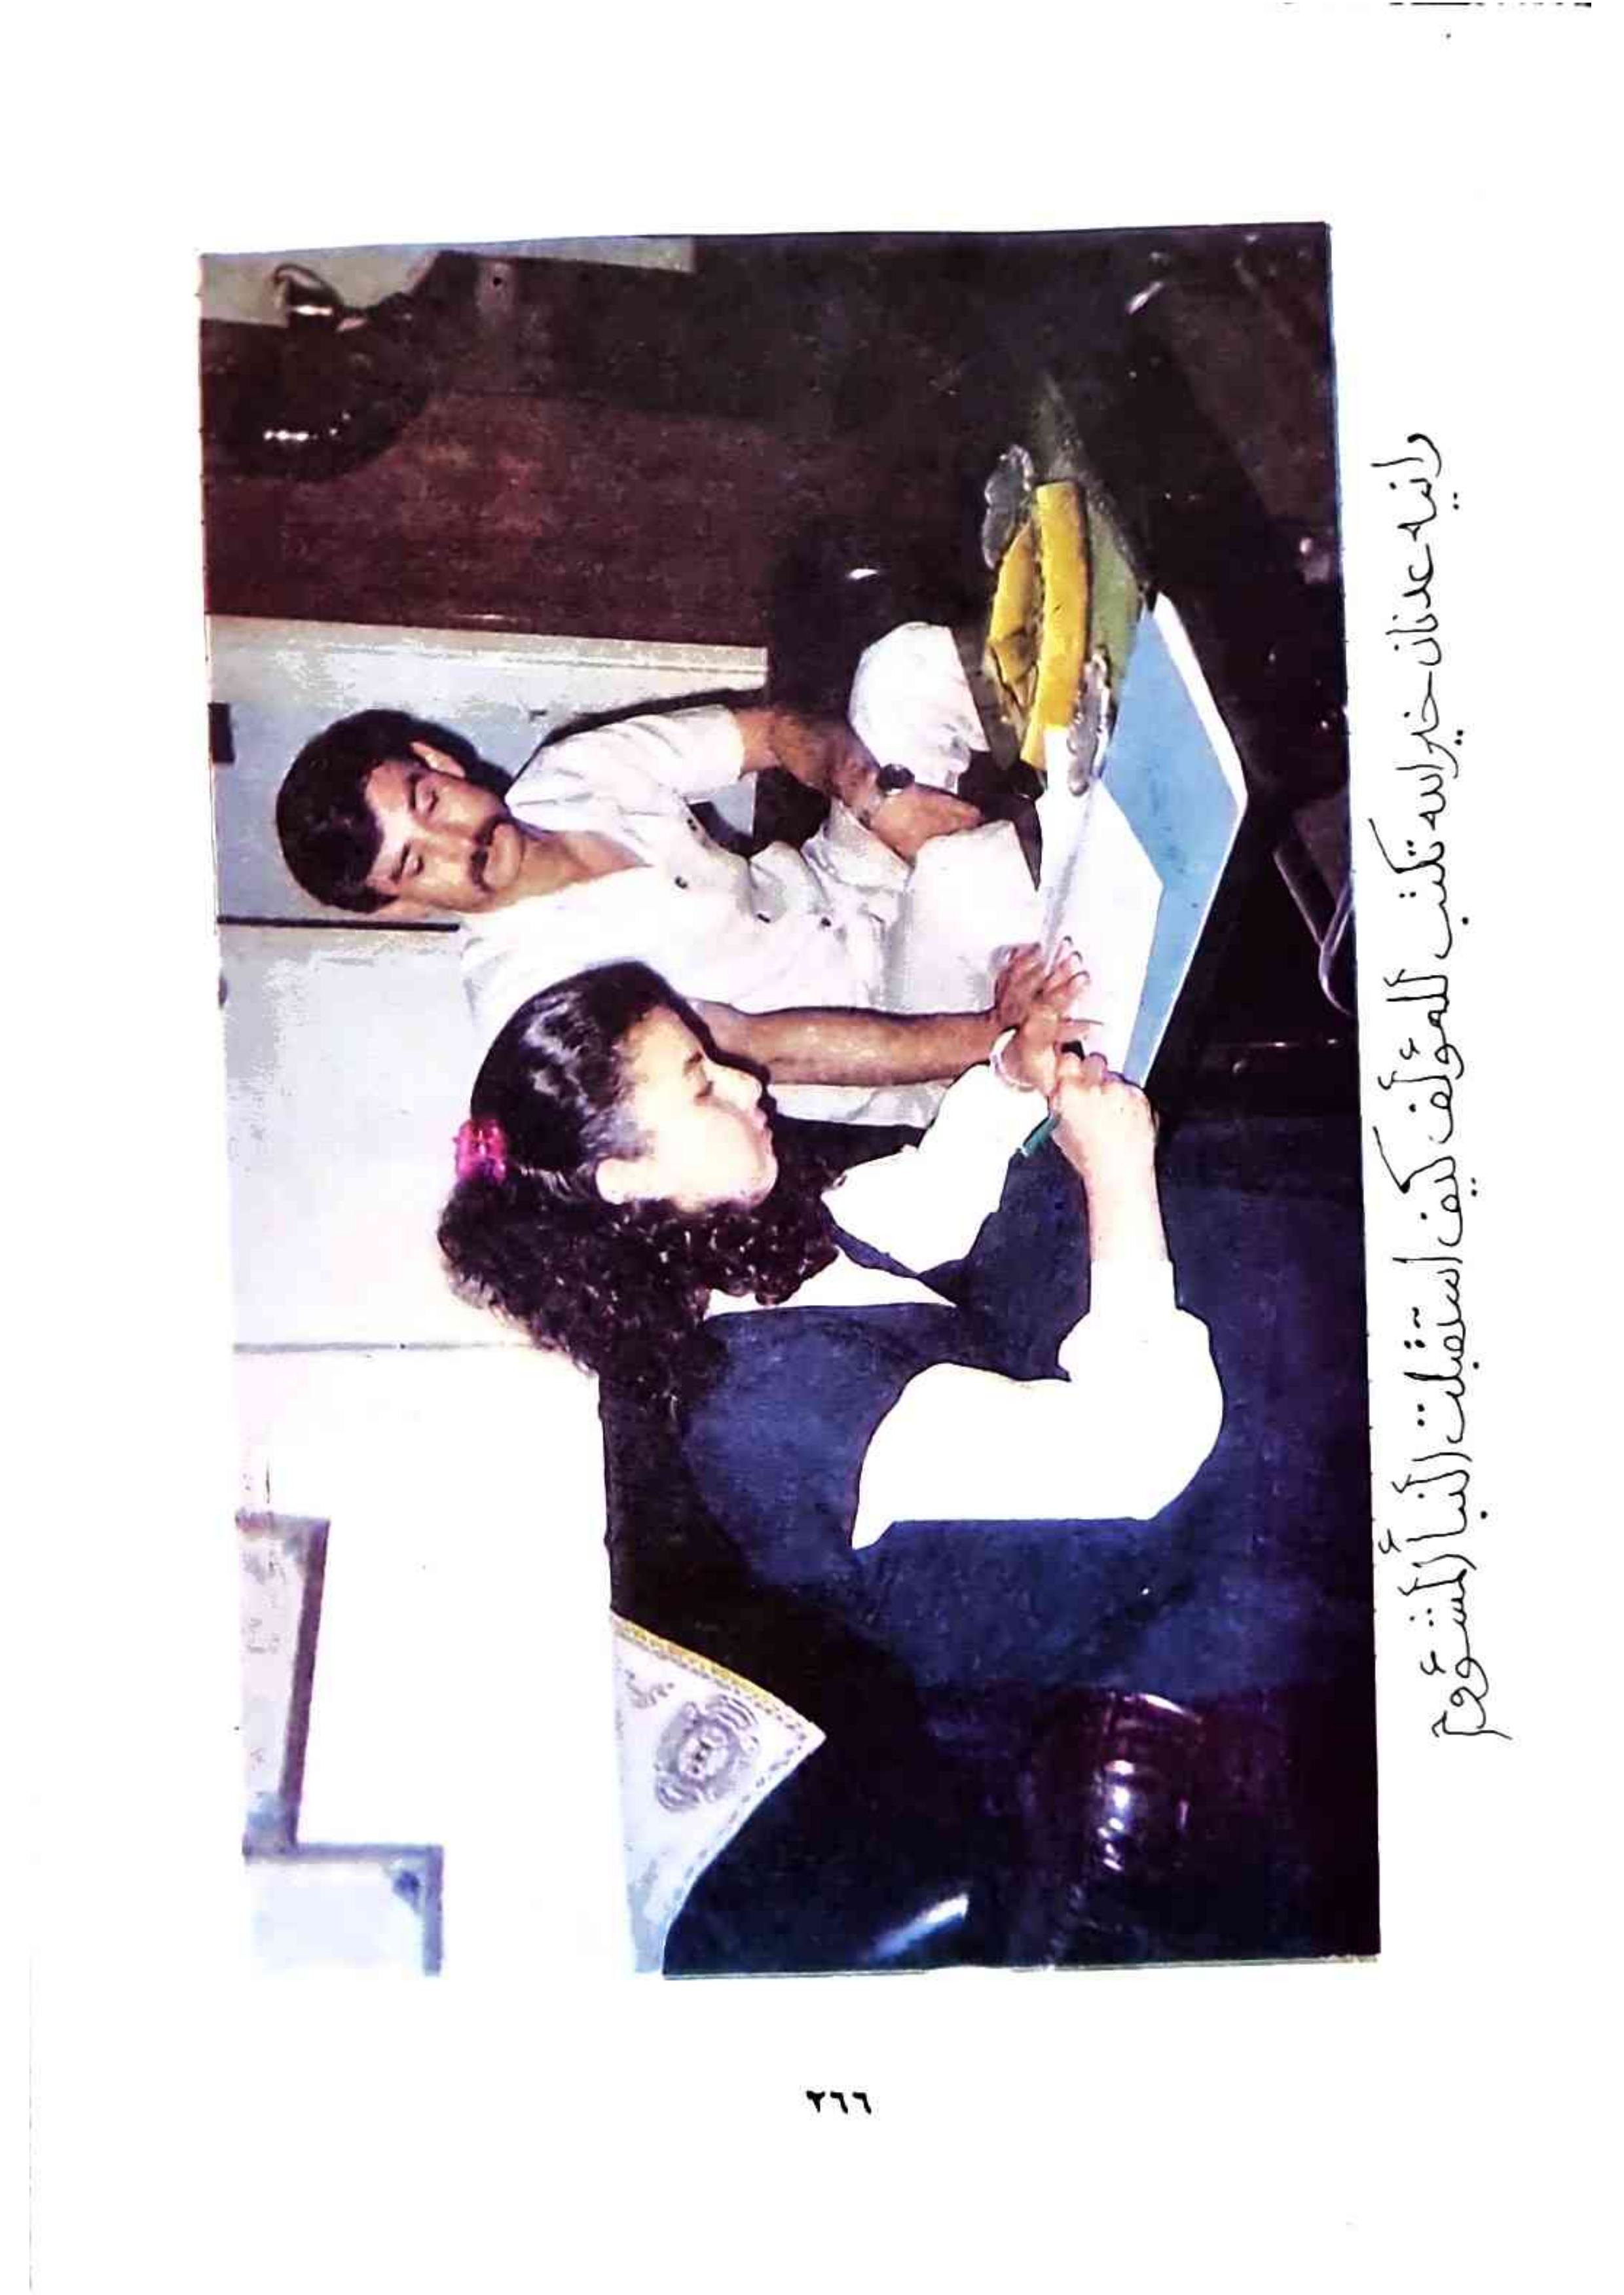 رانيه عدنان خير الله تكتب للمؤلف كيف استقبلت النبأ المشؤوم
٢٦٦